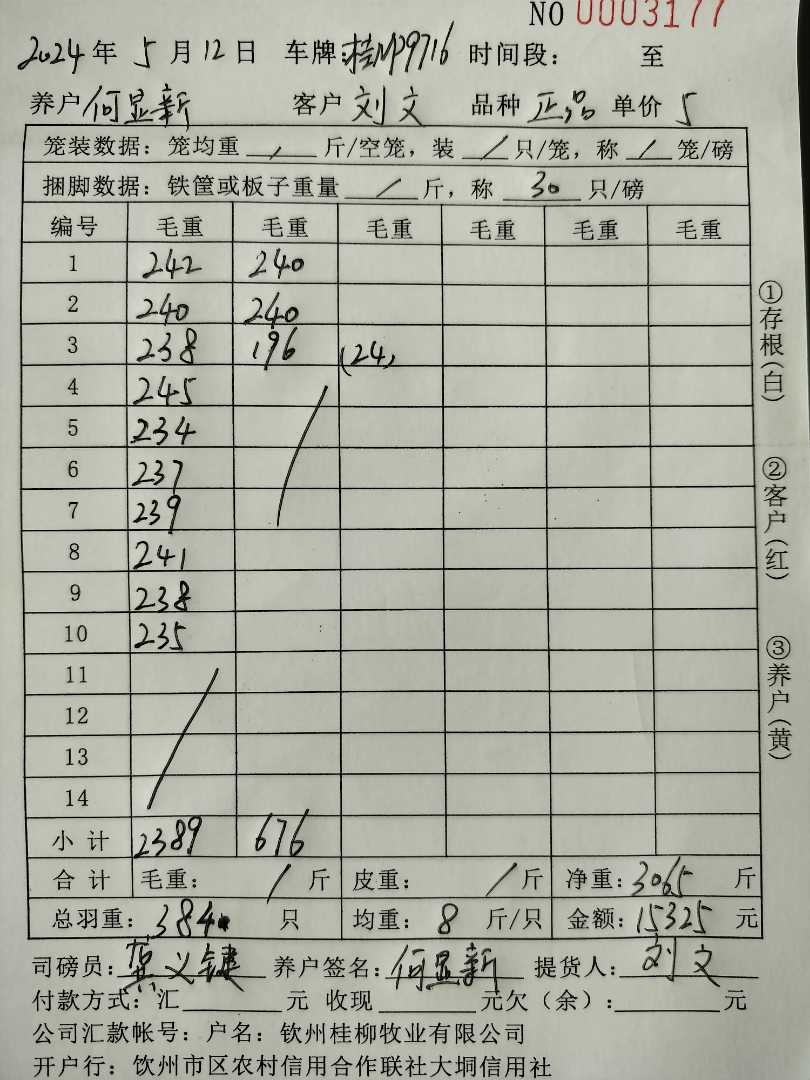 NO 0003177
2024年 5月12日 车牌:桂N29716 时间段: 至
养户 何显新 客户 刘文 品种 正品 单价 5
笼装数据: 笼均重 / 斤/空笼, 装 / 只/笼, 称 / 笼/磅
捆脚数据: 铁筐或板子重量 / 斤, 称 30 只/磅
编号 毛重 毛重 毛重 毛重 毛重 毛重
1 242 240
2 240 240
3 238 196 (24)
4 245
5 234
6 237
7 239
8 241
9 238
10 235
11
12
13
14
小计 2389 676
合计 毛重: / 斤 皮重: / 斤 净重: 3065 斤
总羽重: 384 只 均重: 8 斤/只 金额: 15325 元
司磅员: 龚义键 养户签名: 何显新 提货人: 刘文
付款方式: 汇 元 收现 元欠(余): 元
公司汇款帐号: 户名: 钦州桂柳牧业有限公司
开户行: 饮州市区农村信用合作联社大垌信用社
①存根(白)
②客户(红)
③养户(黄)